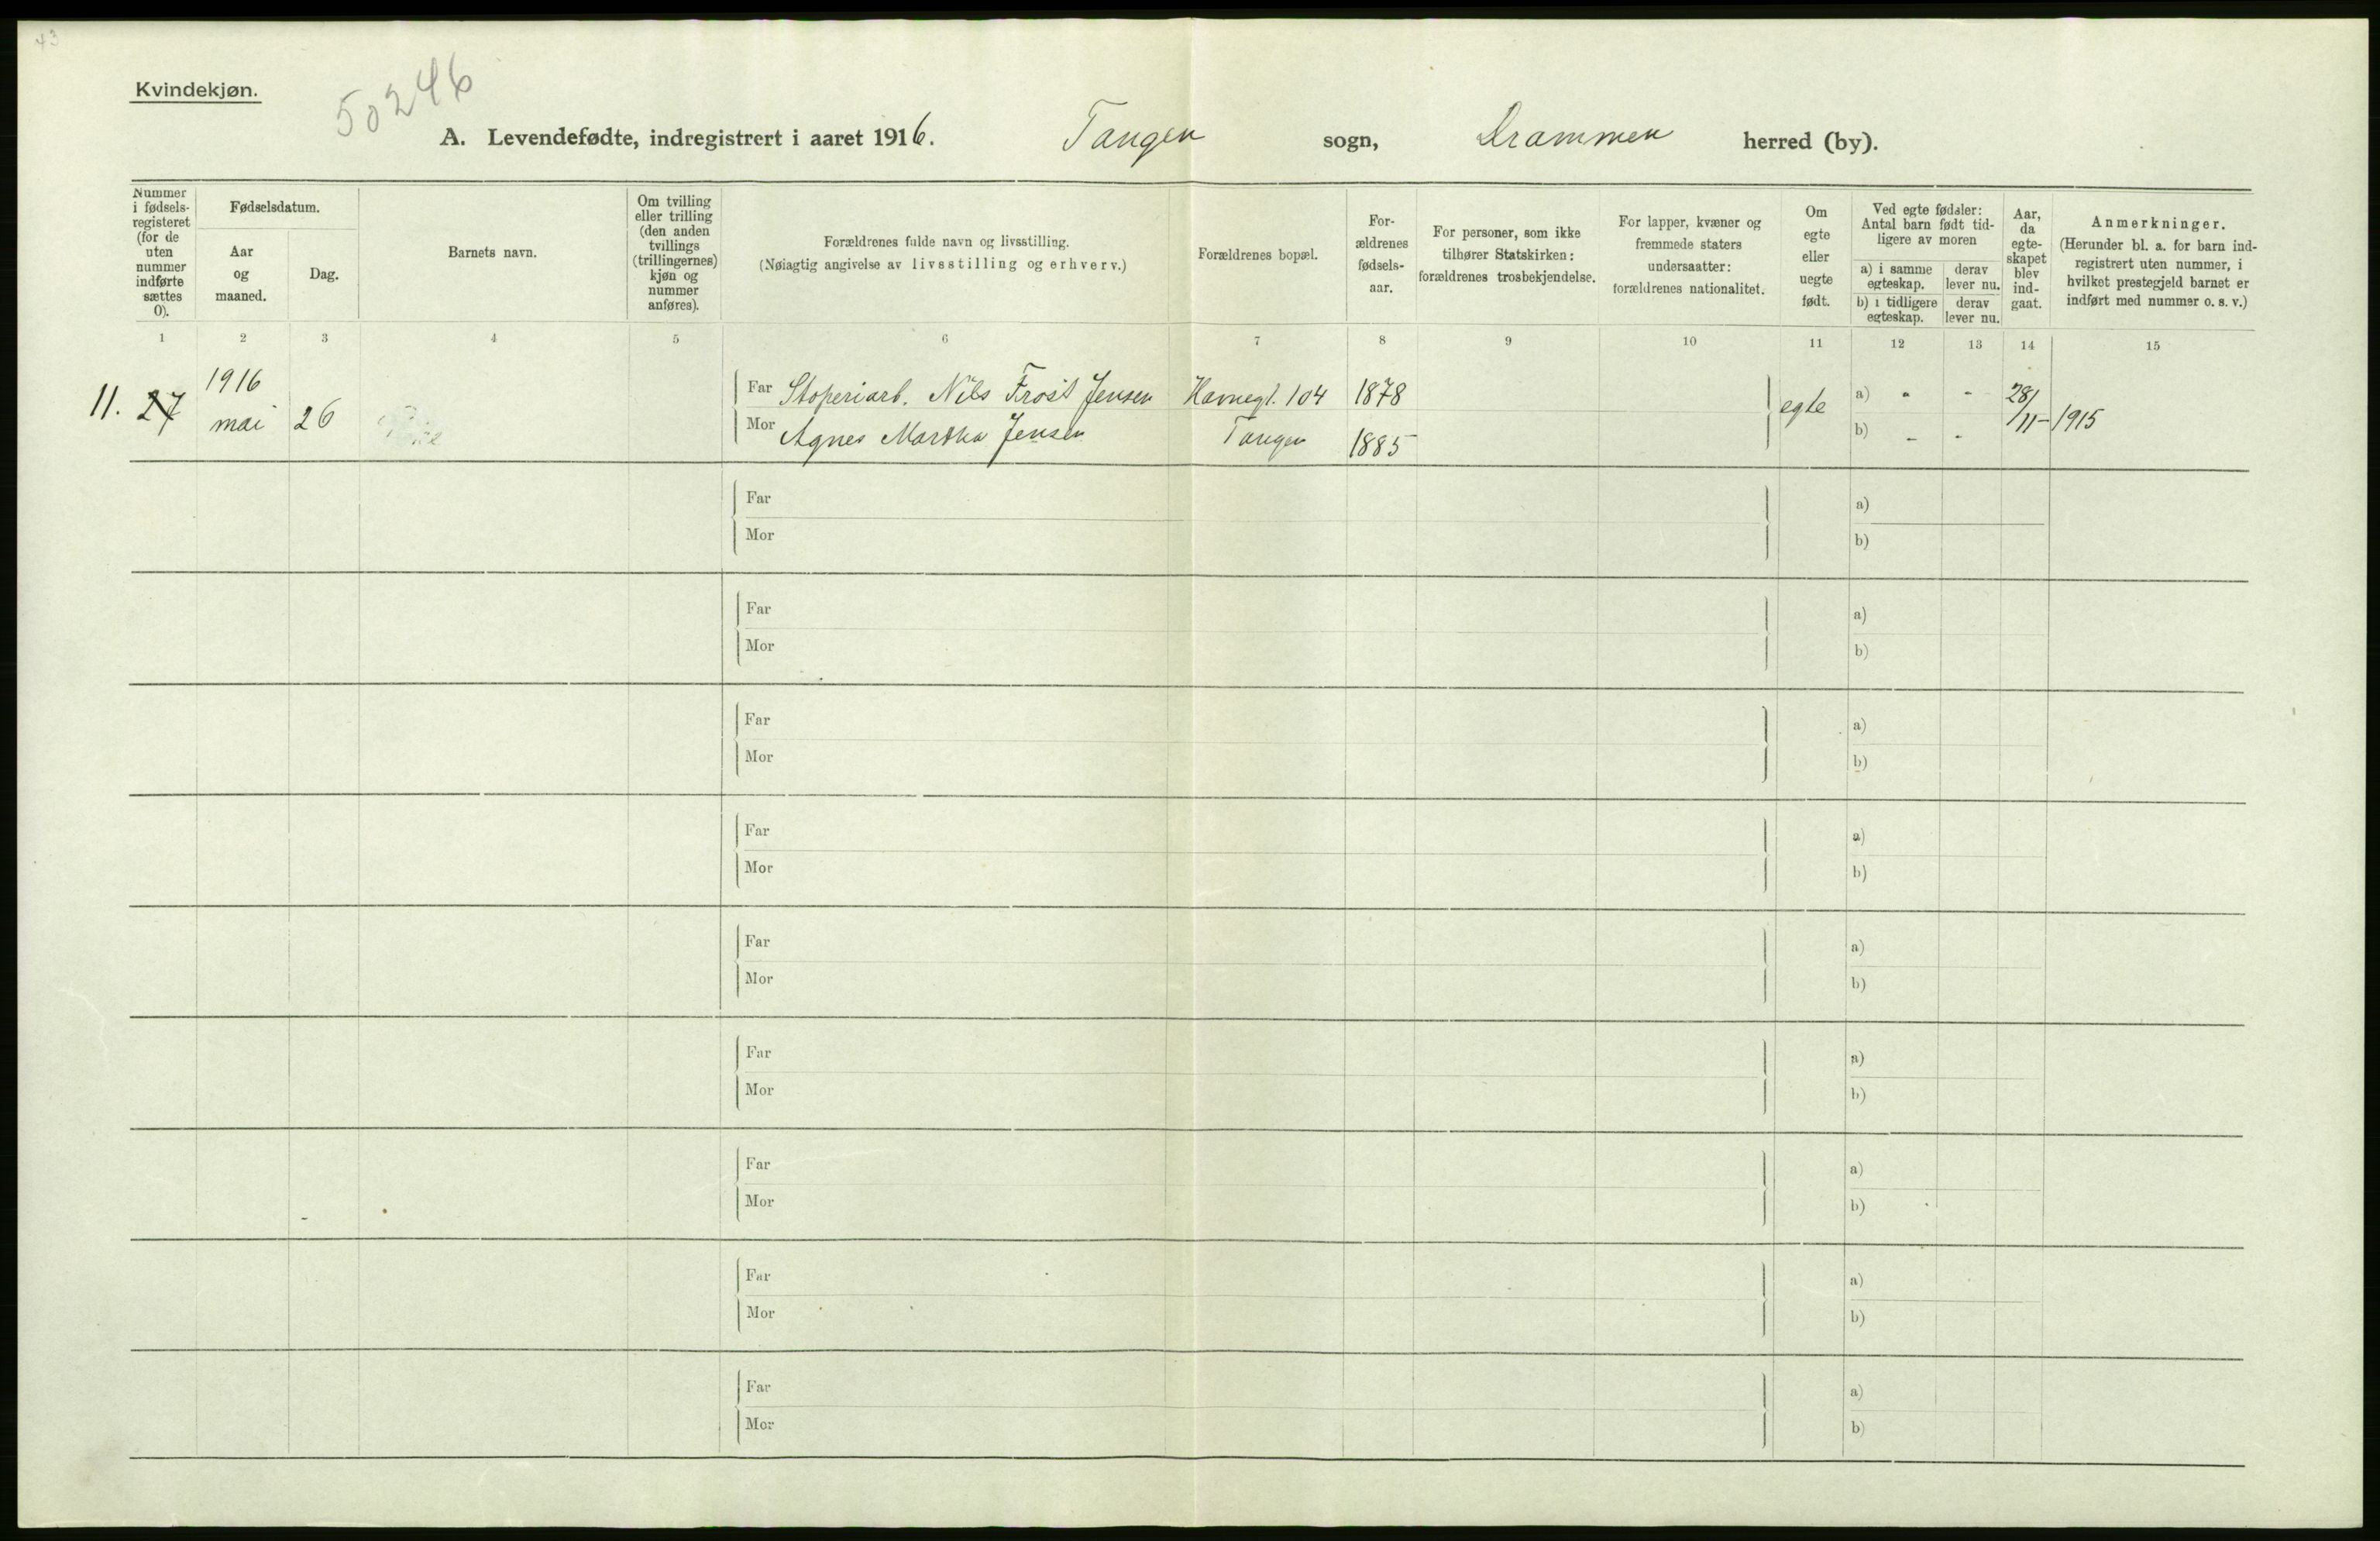 43
Kvindekjøn.
50246
A. Levendefødte, indregistrert i aaret 1916. Tangen sogn, Drammen herred (by).
Nummer i fødsels-registeret (for de uten nummer indførte sættes 0).
Fødselsdatum.
Aar og maaned.
Dag.
Barnets navn.
Om tvilling eller trilling (den anden tvillings (trillingernes) kjøn og nummer anføres).
Forældrenes fulde navn og livsstilling.
(Nøiagtig angivelse av livsstilling og erhverv.)
Forældrenes bopæl.
For-ældrenes fødsels-aar.
For personer, som ikke tilhører Statskirken: forældrenes trosbekjendelse.
For lapper, kvæner og fremmede staters undersaatter: forældrenes nationalitet.
Om egte eller uegte født.
Ved egte fødsler: Antal barn født tid-ligere av moren
a) i samme egteskap.
derav lever nu.
b) i tidligere egteskap.
derav lever nu.
Aar, da egte-skapet blev ind-gaat.
Anmerkninger.
(Herunder bl. a. for barn ind-registrert uten nummer, i hvilket prestegjeld barnet er indført med nummer o. s. v.)
1 2 3 4 5 6 7 8 9 10 11 12 13 14 15
11. 27 1916 mai 26
Far Stoperiarb. Nils Frosit Jensen Havnegt. 104 1878 egte a) " - 28/11-1915
Mor Agnes Martha Jensen Tangen 1885 b) - -
Far a)
Mor b)
Far a)
Mor b)
Far a)
Mor b)
Far a)
Mor b)
Far a)
Mor b)
Far a)
Mor b)
Far a)
Mor b)
Far a)
Mor b)
Far a)
Mor b)